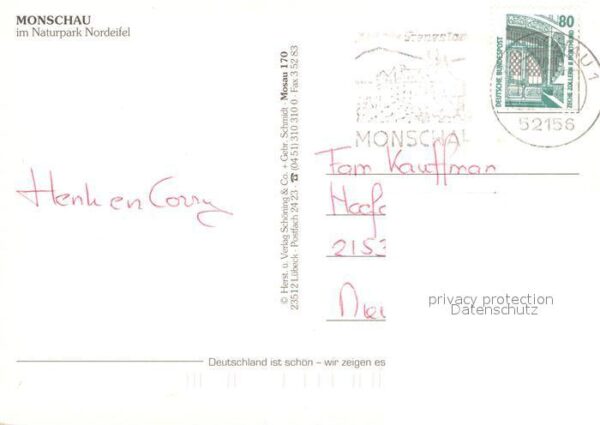 MONSCHAU
im Naturpark Nordeifel
Henk en Corry
© Herst. u. Verlag Schöning & Co. + Gebr. Schmidt · Mosau 170
23512 Lübeck · Postfach 24 23 · ☎ (04 51) 310 310 0 · Fax 3 52 83
MONSCHAU
80
DEUTSCHE BUNDESPOST
ZECHE ZOLLERN II, DORTMUND
U 1
52156
Fam Kauffman
2153
privacy protection
Datenschutz
Deutschland ist schön – wir zeigen es